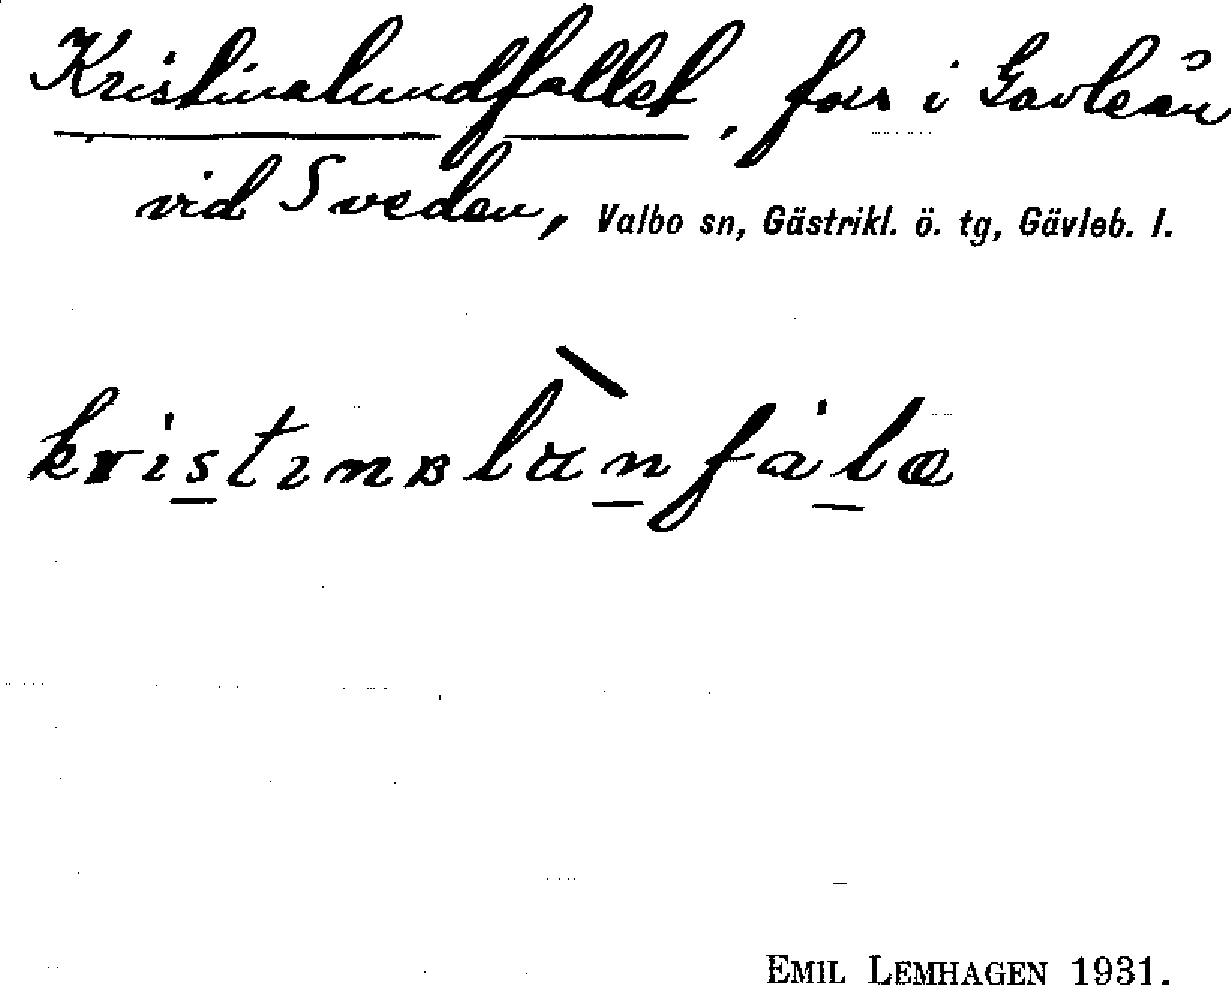 Kristinalundfallet, fors i Gavleån
vid Sveden, Valbo sn, Gästrikl. ö. tg, Gävleb. l.
EMIL LEMHAGEN 1931.